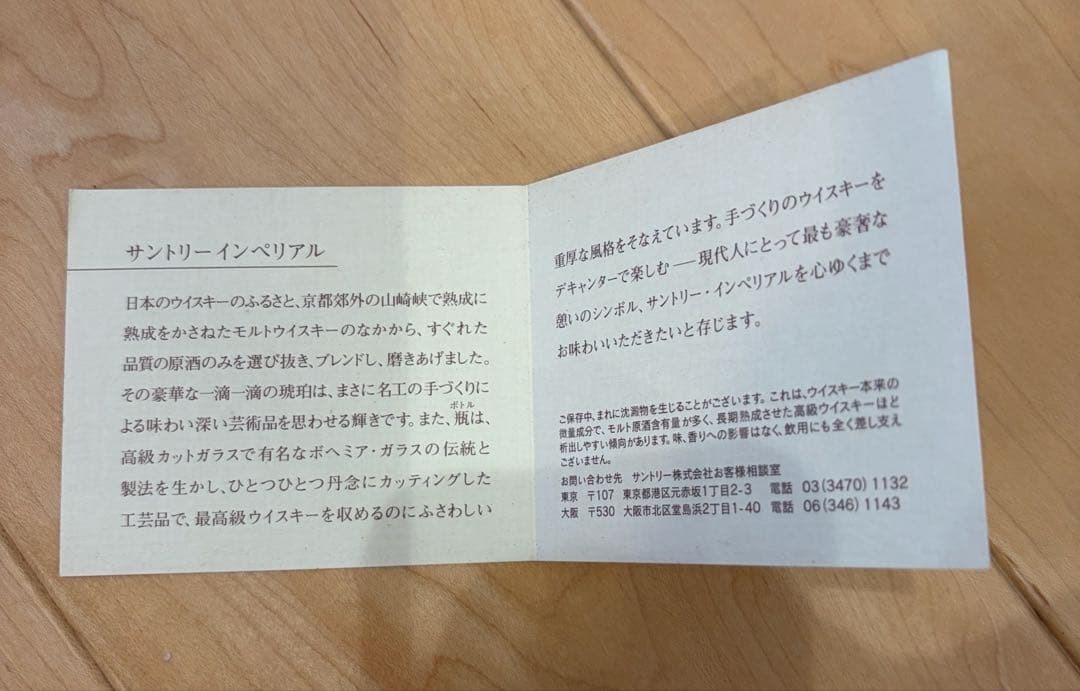 サントリーインペリアル
日本のウイスキーのふるさと、京都郊外の山崎峡で熟成に
熟成をかさねたモルトウイスキーのなかから、すぐれた
品質の原酒のみを選び抜き、ブレンドし、磨きあげました。
その豪華な一滴一滴の琥珀は、まさに名工の手づくりに
よる味わい深い芸術品を思わせる輝きです。また、瓶は、
ボトル
高級カットガラスで有名なボヘミア・ガラスの伝統と
製法を生かし、ひとつひとつ丹念にカッティングした
工芸品で、最高級ウイスキーを収めるのにふさわしい
重厚な風格をそなえています。手づくりのウイスキーを
デキャンターで楽しむ──現代人にとって最も豪奢な
憩いのシンボル、サントリー・インペリアルを心ゆくまで
お味わいいただきたいと存じます。
ご保存中、まれに沈澱物を生じることがございます。これは、ウイスキー本来の
微量成分で、モルト原酒含有量が多く、長期熟成させた高級ウイスキーほど
析出しやすい傾向があります。味、香りへの影響はなく、飲用にも全く差し支え
ございません。
お問い合わせ先 サントリー株式会社お客様相談室
東京 〒107 東京都港区元赤坂1丁目2-3 電話 03(3470)1132
大阪 〒530 大阪市北区堂島浜2丁目1-40 電話 06(346)1143